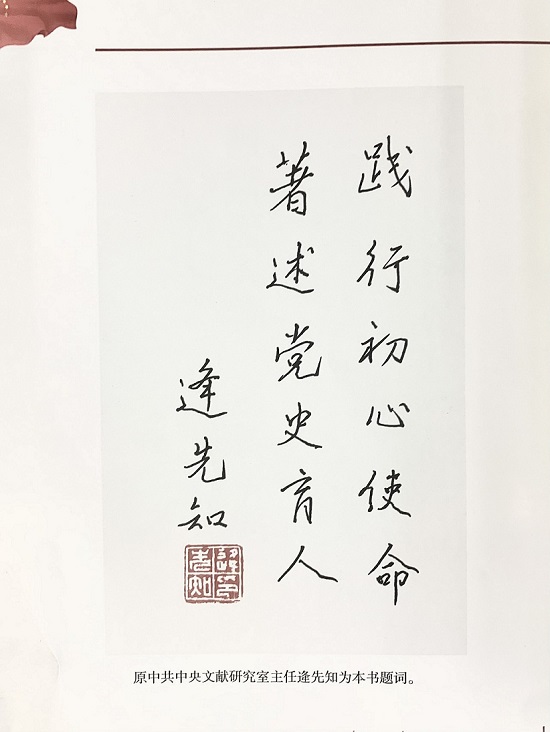 践行初心使命
著述党史育人
逄先知
原中共中央文献研究室主任逄先知为本书题词。